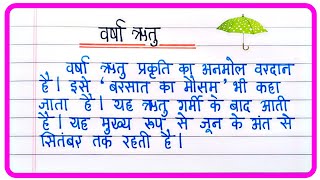 वर्षा ऋतु
वर्षा ऋतु प्रकृति का अनमोल वरदान
है। इसे 'बरसात का मौसम' भी कहा
जाता है। यह ऋतु गर्मी के बाद आती
है। यह मुख्य रूप से जून के अंत से
सितंबर तक रहती है।